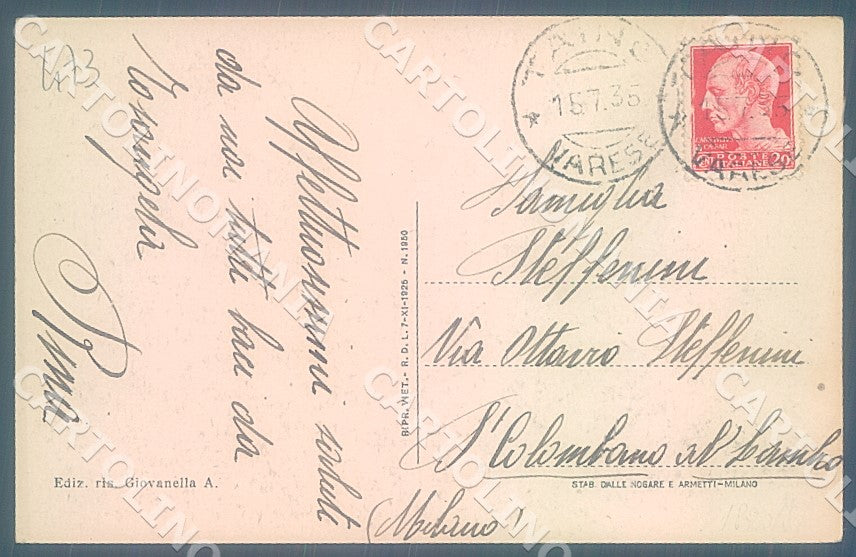 473
Affettuosissimi saluti
da noi tutti baci da
Rosangela
Pima
TAINO
15.7.35
* VARESE *
POSTE
ITALIANE
20
Famiglia
Steffenini
Via Ottavio Steffenini
S. Colombano al Lambro
(Milano)
RIPR. VIET. - R. D. L. 7-XI-1925 - N. 1950
Ediz. ris. Giovanella A.
STAB. DALLE NOGARE E ARMETTI-MILANO
CARTOLINOMANIA